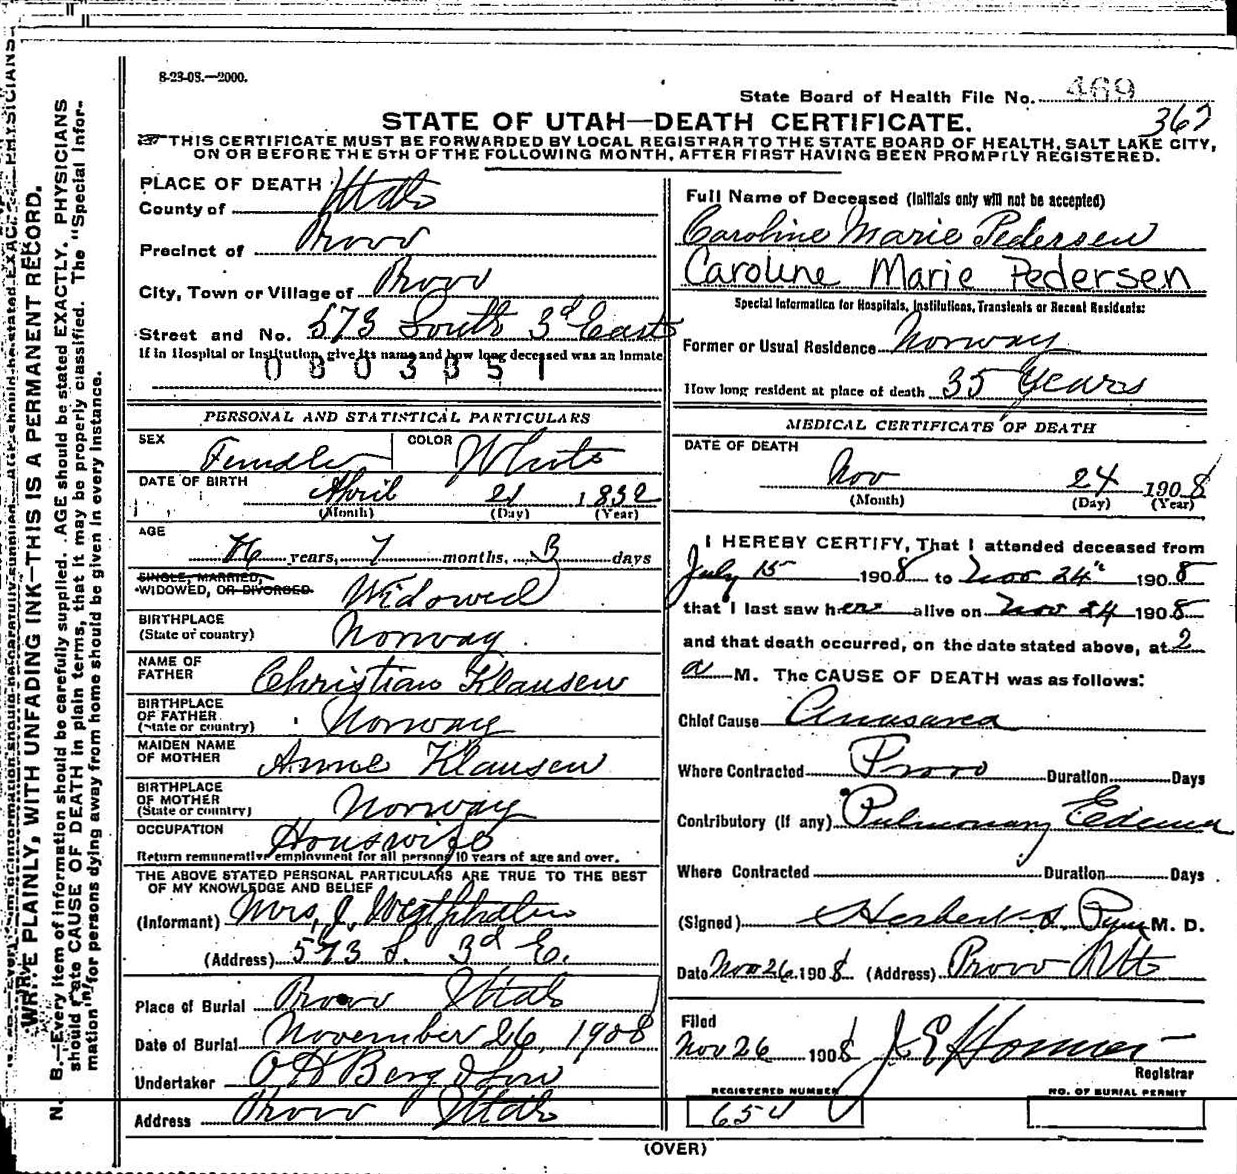 8-23-05.—2000.
State Board of Health File No. 469
STATE OF UTAH—DEATH CERTIFICATE. 367
THIS CERTIFICATE MUST BE FORWARDED BY LOCAL REGISTRAR TO THE STATE BOARD OF HEALTH, SALT LAKE CITY,
ON OR BEFORE THE 5TH OF THE FOLLOWING MONTH, AFTER FIRST HAVING BEEN PROMPTLY REGISTERED.
PLACE OF DEATH
County of Utah
Precinct of Provo
City, Town or Village of Provo
Street and No. 573 South 3d East
If in Hospital or Institution, give its name and how long deceased was an inmate
0803851
PERSONAL AND STATISTICAL PARTICULARS
SEX Female COLOR White
DATE OF BIRTH April 21 1832
(Month) (Day) (Year)
AGE
76 years, 7 months, 3 days
SINGLE, MARRIED,
WIDOWED, OR DIVORCED Widowed
BIRTHPLACE
(State or country) Norway
NAME OF
FATHER Christian Klausen
BIRTHPLACE
OF FATHER
(State or country) Norway
MAIDEN NAME
OF MOTHER Anne Klausen
BIRTHPLACE
OF MOTHER
(State or country) Norway
OCCUPATION Houswife
Return remunerative employment for all persons 10 years of age and over.
THE ABOVE STATED PERSONAL PARTICULARS ARE TRUE TO THE BEST
OF MY KNOWLEDGE AND BELIEF
(Informant) Mrs. J.
(Address) 573 S. 3d E.
Place of Burial Provo Utah
Date of Burial November 26, 1908
Undertaker O H Berg & Son
Address Provo Utah
Full Name of Deceased (Initials only will not be accepted)
Caroline Marie Pedersen
Caroline Marie Pedersen
Special Information for Hospitals, Institutions, Transients or Recent Residents:
Former or Usual Residence Norway
How long resident at place of death 35 Years
MEDICAL CERTIFICATE OF DEATH
DATE OF DEATH
Nov 24 1908
(Month) (Day) (Year)
I HEREBY CERTIFY, That I attended deceased from
July 15 1908 to Nov 24" 1908
that I last saw her alive on Nov 24 1908
and that death occurred, on the date stated above, at 2
a M. The CAUSE OF DEATH was as follows:
Chief Cause Anasarca
Where Contracted Provo Duration Days
Contributory (If any) Pulmonary Edema
Where Contracted Duration Days
(Signed) Herbert S. Pyne M. D.
Date Nov 26 1908 (Address) Provo Utah
Filed
Nov 26 1908 J. E. Homer
Registrar
REGISTERED NUMBER NO. OF BURIAL PERMIT
(OVER)
WRITE PLAINLY, WITH UNFADING INK—THIS IS A PERMANENT RECORD.
N. B.—Every item of information should be carefully supplied. AGE should be stated EXACTLY. PHYSICIANS
should state CAUSE OF DEATH in plain terms, that it may be properly classified. The "Special Infor-
mation" for persons dying away from home should be given in every instance.